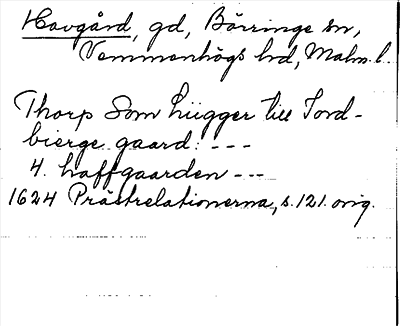 Havgård, gd, Börringe sn,
Vemmenhögs hd, Malm. l.
Thorp Som Liigger till Tord-
bierge gaard: ---
4. haffgaarden ---
1624 Prästrelationerna, s. 121. orig.